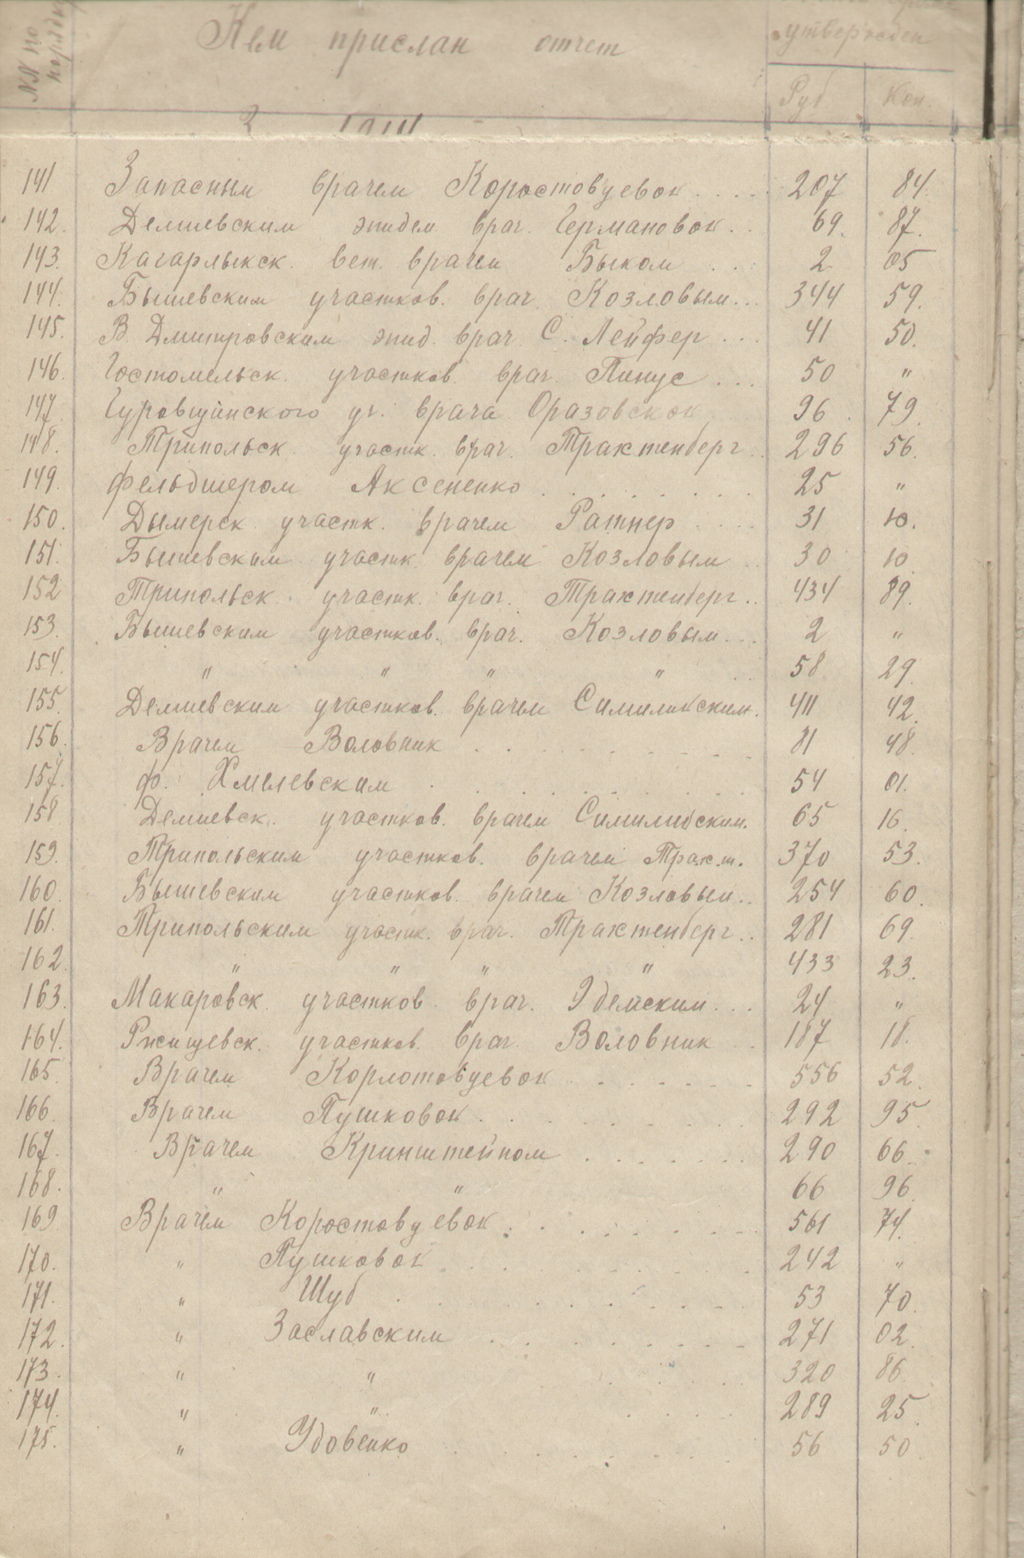 NN по порядку Кем прислан отчет утвержден
Руб. Коп.
141 Запасным врачем Коростовцевой .... 207 84.
142. Демиевским эпидем врач. Германовой .. 69. 87.
143. Кагарлыкск. вет. врачем Быком ... 2 05
144. Бышевским участков. врач. Козловым... 344 59.
145. В. Дмитровским эпид. врач. С. Лейфер ... 41 50.
146. Гостомельск. участков. врач. Пинус ... 50 "
147. Гуровщинского уч. врача Оразовской 96 79.
148. Трипольск. участк. врач. Трактенберг.. 296 56.
149. Фельдшером Аксененко . . . . . . . 25 "
150. Дымерск. участк. врачем Ратнер .... 31 10.
151. Бышевским участк. врачем Козловым .. 30 10.
152 Трипольск. участк. врач. Трактенберг.. 434 89.
153. Бышевским участков. врач. Козловым... 2 "
154. " " " " .. 58 29.
155. Демиевским участков. врачем Симилийским. 411 42.
156. Врачем Воловник . . . . . . . 81 48.
157. ф. Хмелевским . . . . . . . . 54 01.
158 Демиевск. участков. врачем Симилийским. 65 16.
159. Трипольским участков. врачем Тракт. 370 53.
160. Бышевским участков. врачем Козловым.. 254 60.
161. Трипольским участк. врач. Трактенберг.. 281 69.
162. " " " " 433 23.
163. Макаровск. участков. врач. Эдемским... 24 "
164. Ржищевск. участков. врач. Воловник . 187 18.
165. Врачем Корлотовцевой . . . . . . 556 52.
166. Врачем Пушковой . . . . . . . . 292 95
167. Врачем Кринштейном . . . . . . 290 66.
168. " " 66 96.
169 Врачем Коростовцевой . . . . . . . 561 74.
170. " Пушковой . . . . . . . 242 "
171. " Шуб . . . . . . . . 53 70.
172. " Заславским . . . . . . . 271 02.
173. " " . . . . . 320 86.
174. " " . . . . 289 25.
175. " Удовенко . . . . . . 56 50.